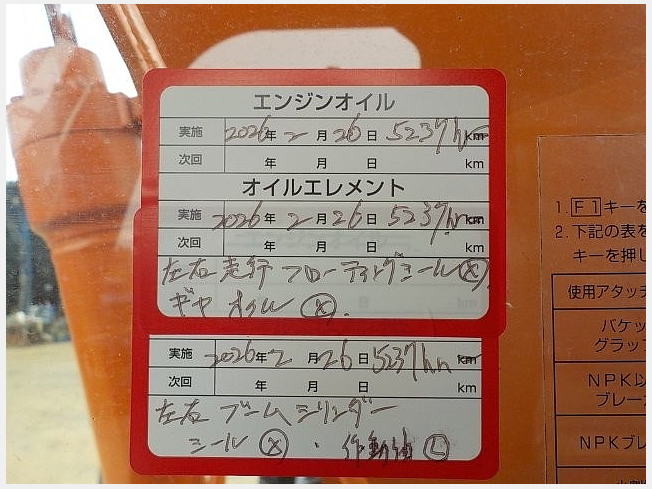 エンジンオイル
実施 2026年 2月 26日 5237hr km
次回 年 月 日 km
オイルエレメント
実施 2026年 2月 26日 5237hr km
次回 年 月 日 km
左右走行フローティングシール Ⓧ.
ギヤオイル Ⓧ.
実施 2026年 2月 26日 5237hr km
次回 年 月 日 km
左右ブームシリンダー
シール Ⓧ ・ 作動油 Ⓛ
1. F1 キーを
2. 下記の表を
キーを押し
使用アタッチ
バケッ
グラップ
NPK以
ブレーカ
NPKブレ